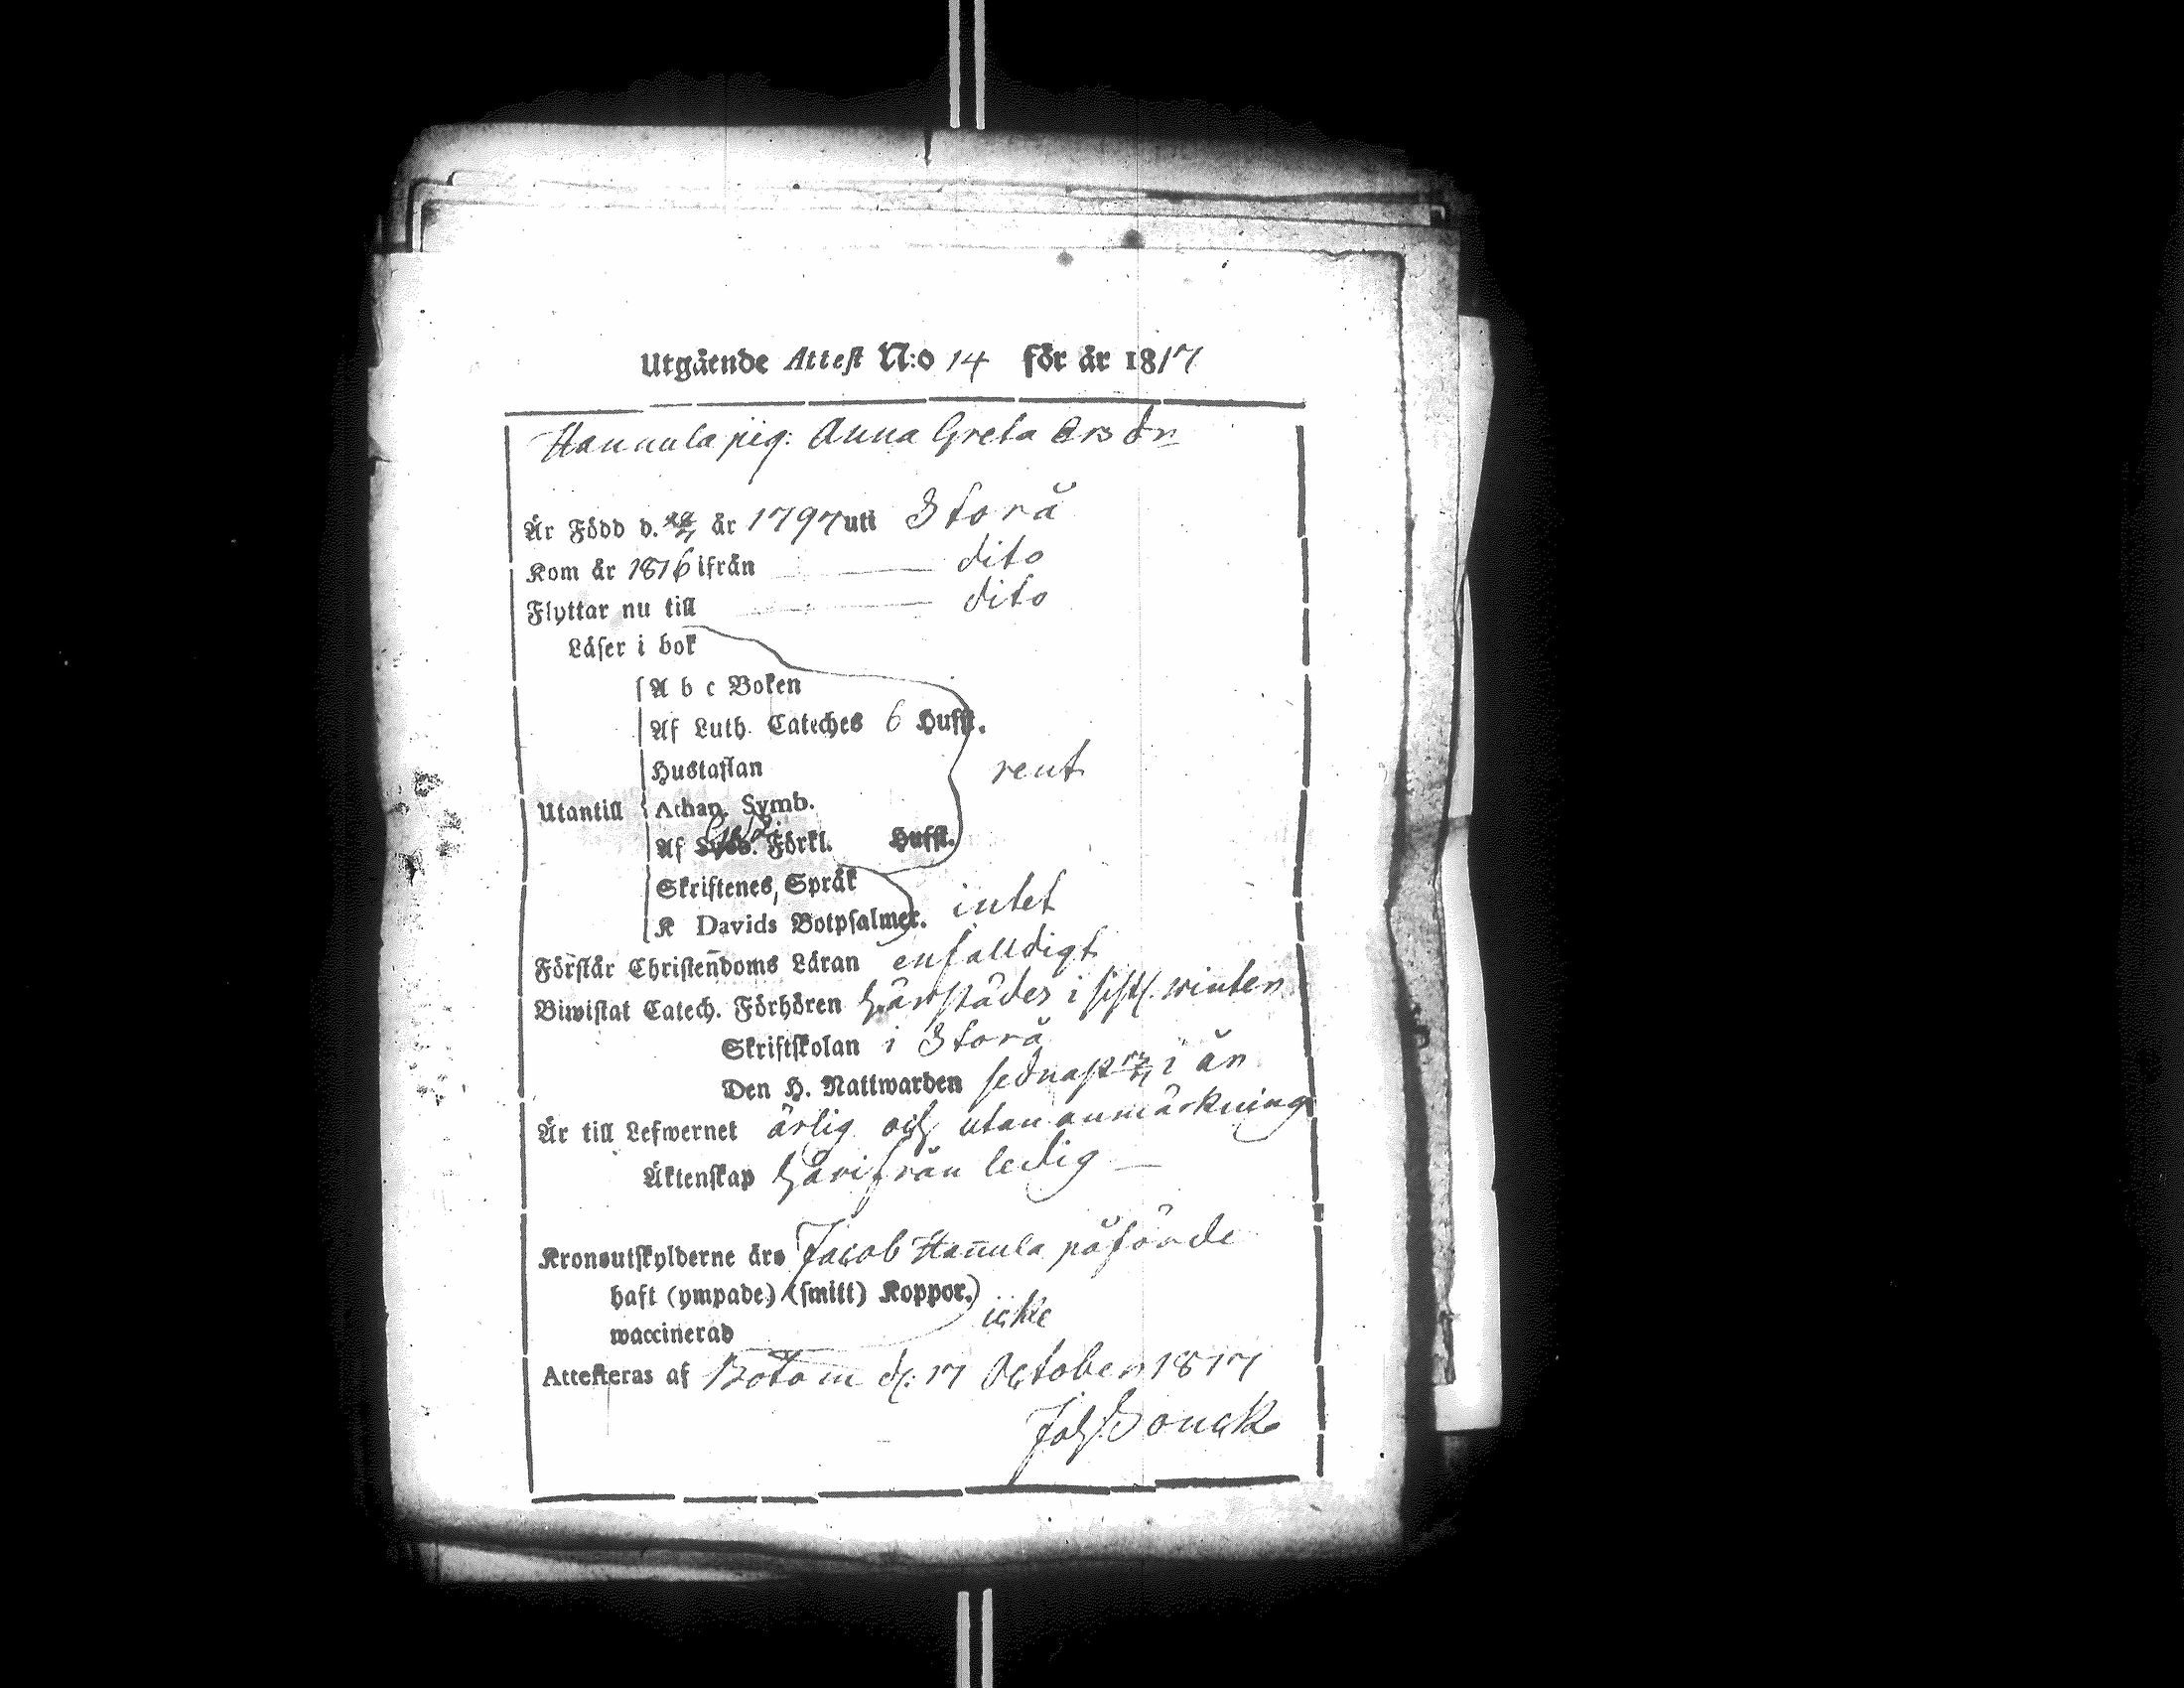 Utgående Attest N:o 14 för år 1817
Hannula pig: Anna Greta Ersdr
Är Född d. år 1797 uti Storå
Kom år 1816 ifrån dito
Flyttar nu till dito
Läser i bok
A b c Boken
Af Luth. Cateches 6 Hufst.
Hustaflan
rent
Utantill Athan. Symb.
Af Förkl. Hufst.
Skriftenes Språk
K Davids Botpsalmer. intet
Förstår Christendoms Läran enfalldigt
Biwistat Catech. Förhören härstädes i sistl. winter
Skriftskolan i Storå
Den H. Nattwarden sednast i år
Är till Lefwernet ärlig och utan anmärkning
Äktenskap härifrån ledig
Kronoutskylderne äro Jacob Han̄ula påförde
haft (ympade) (smitt) Koppor.)
icke
waccinerad
Attesteras af Bötom d: 17 October 1817
Joh Bonck